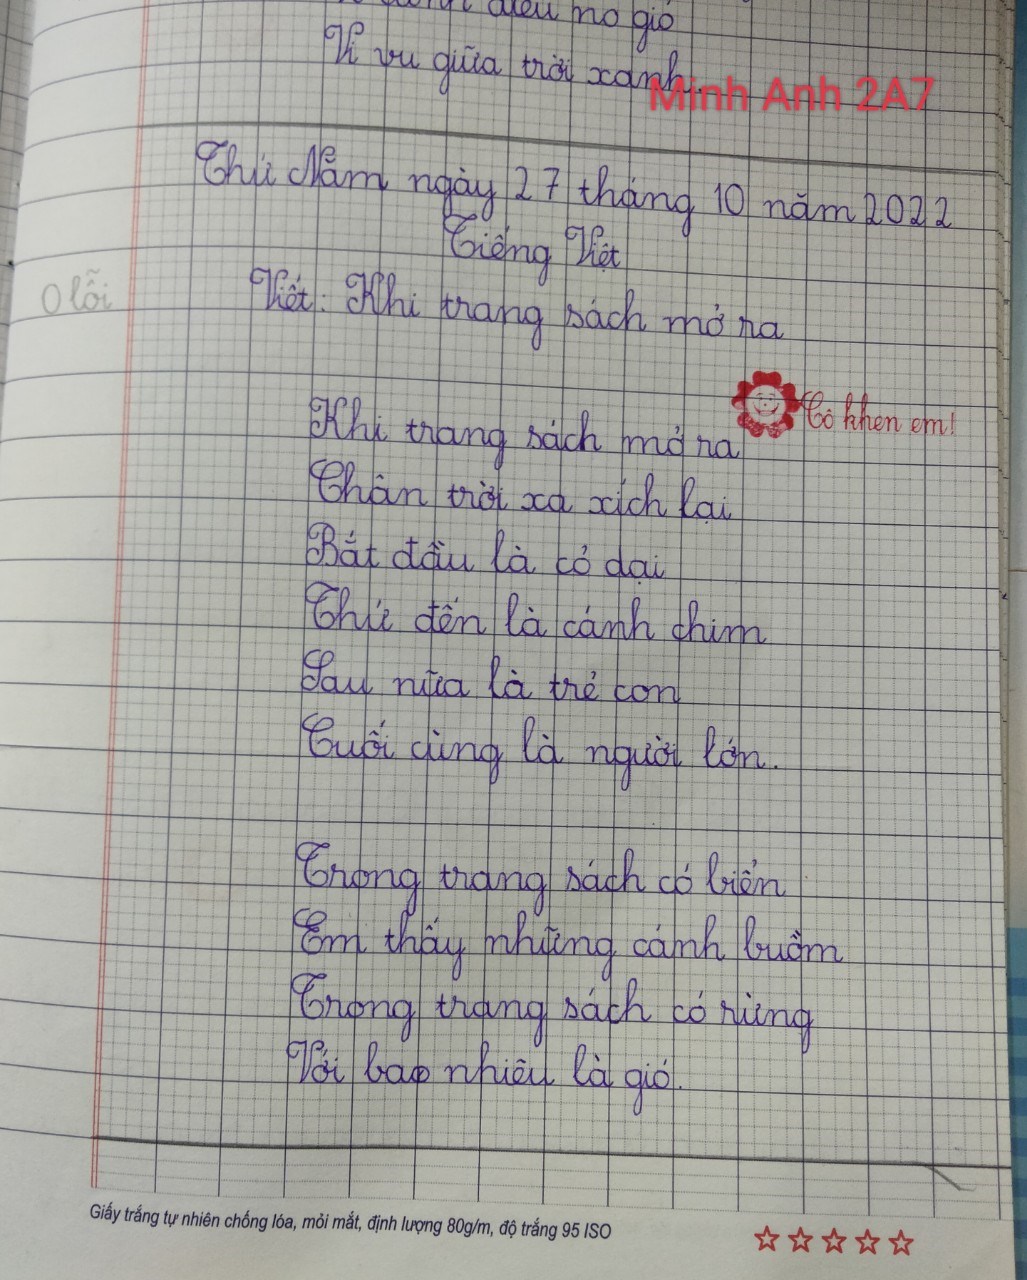 diều no gió
Vi vu giữa trời xanh.
Minh Anh 2A7
Thứ Năm ngày 27 tháng 10 năm 2022
Tiếng Việt
0 lỗi
Viết: Khi trang sách mở ra
Cô khen em!
Khi trang sách mở ra
Chân trời xa xích lại
Bắt đầu là cỏ dại
Thứ đến là cánh chim
Sau nữa là trẻ con
Cuối cùng là người lớn.
Trong trang sách có biển
Em thấy những cánh buồm
Trong trang sách có rừng
Với bao nhiêu là gió.
Giấy trắng tự nhiên chống lóa, mỏi mắt, định lượng 80g/m, độ trắng 95 ISO